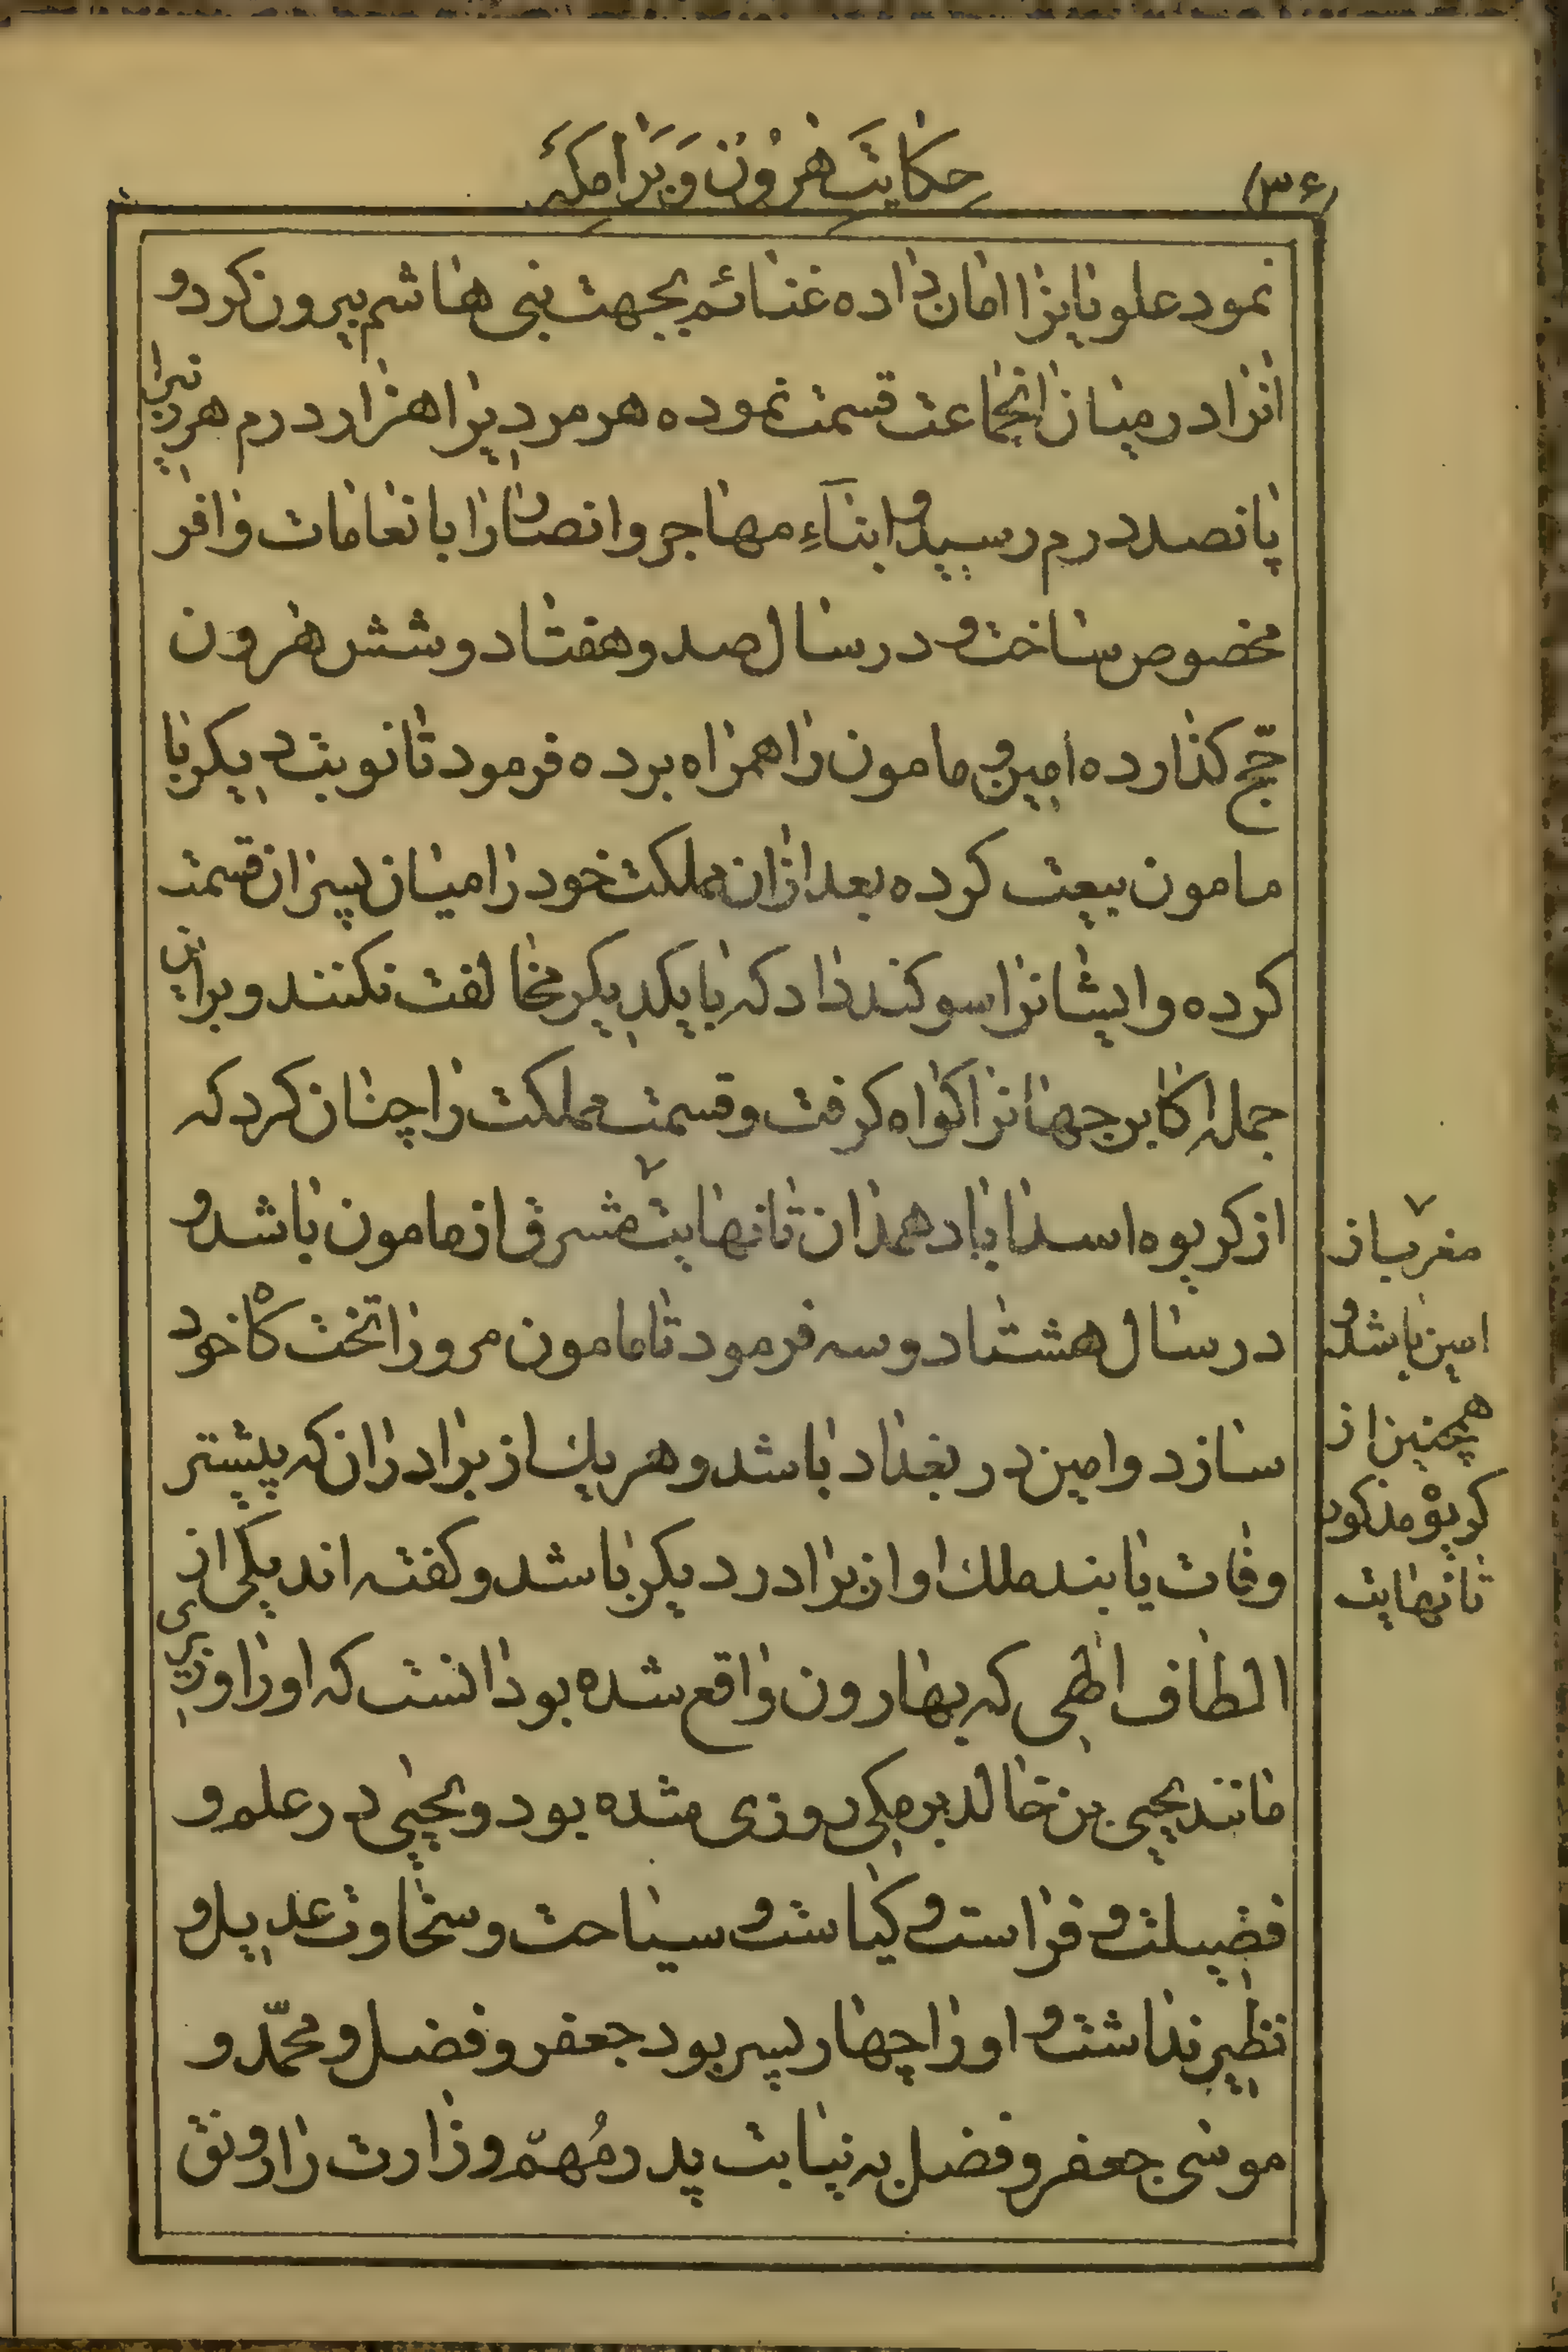 (۳۶)
حکایت هرون و برامکه
نمود علویانرا امان داده غنائم بجهت بنی هاشم بیرون کرد و
انرا در میان انجماعت قسمت نموده هر مردیرا هزار درم هر زنیرا
پانصد درم رسید و ابناءِ مهاجر و انصار را بانعامات وافر
مخصوص ساخت و در سال صد و هفتاد و شش هرون
حجّ کذارده امین و مامون را همراه برده فرمود تا نوبت دیکر با
مامون بیعت کرده بعد ازان مملکت خود را میان پسران قسمت
کرده و ایشانرا سوکند داد که با یکدیکر مخالفت نکنند و براین
جمله اکابر جهانرا کواه کرفت و قسمت مملکت را چنان کرد که
از کریوه اسداباد همدان تا نهایت مشرق از مامون باشد و
در سال هشتاد و سه فرمود تا مامون مرو را تختکاه خود
سازد و امین در بغداد باشد و هر یك از برادران که پیشتر
وفات یابند ملك او از برادر دیکر باشد و کفته اند یکی از
الطاف الهی که بهارون واقع شده بود انست که او را وزیری
مانند یحیی بن خالد برمکی روزی شده بود و یحیی در علم و
فضیلت و فراست و کیاست و سیاحت و سخاوت عدیل و
نظیر نداشت و او را چهار پسر بود جعفر و فضل و محمّد و
موسی جعفر و فضل به نیابت پدر مُهمّ وزارت را رونق
مغرب از
امین باشد و
همچنین از
کریوه مذکور
تا نهایت